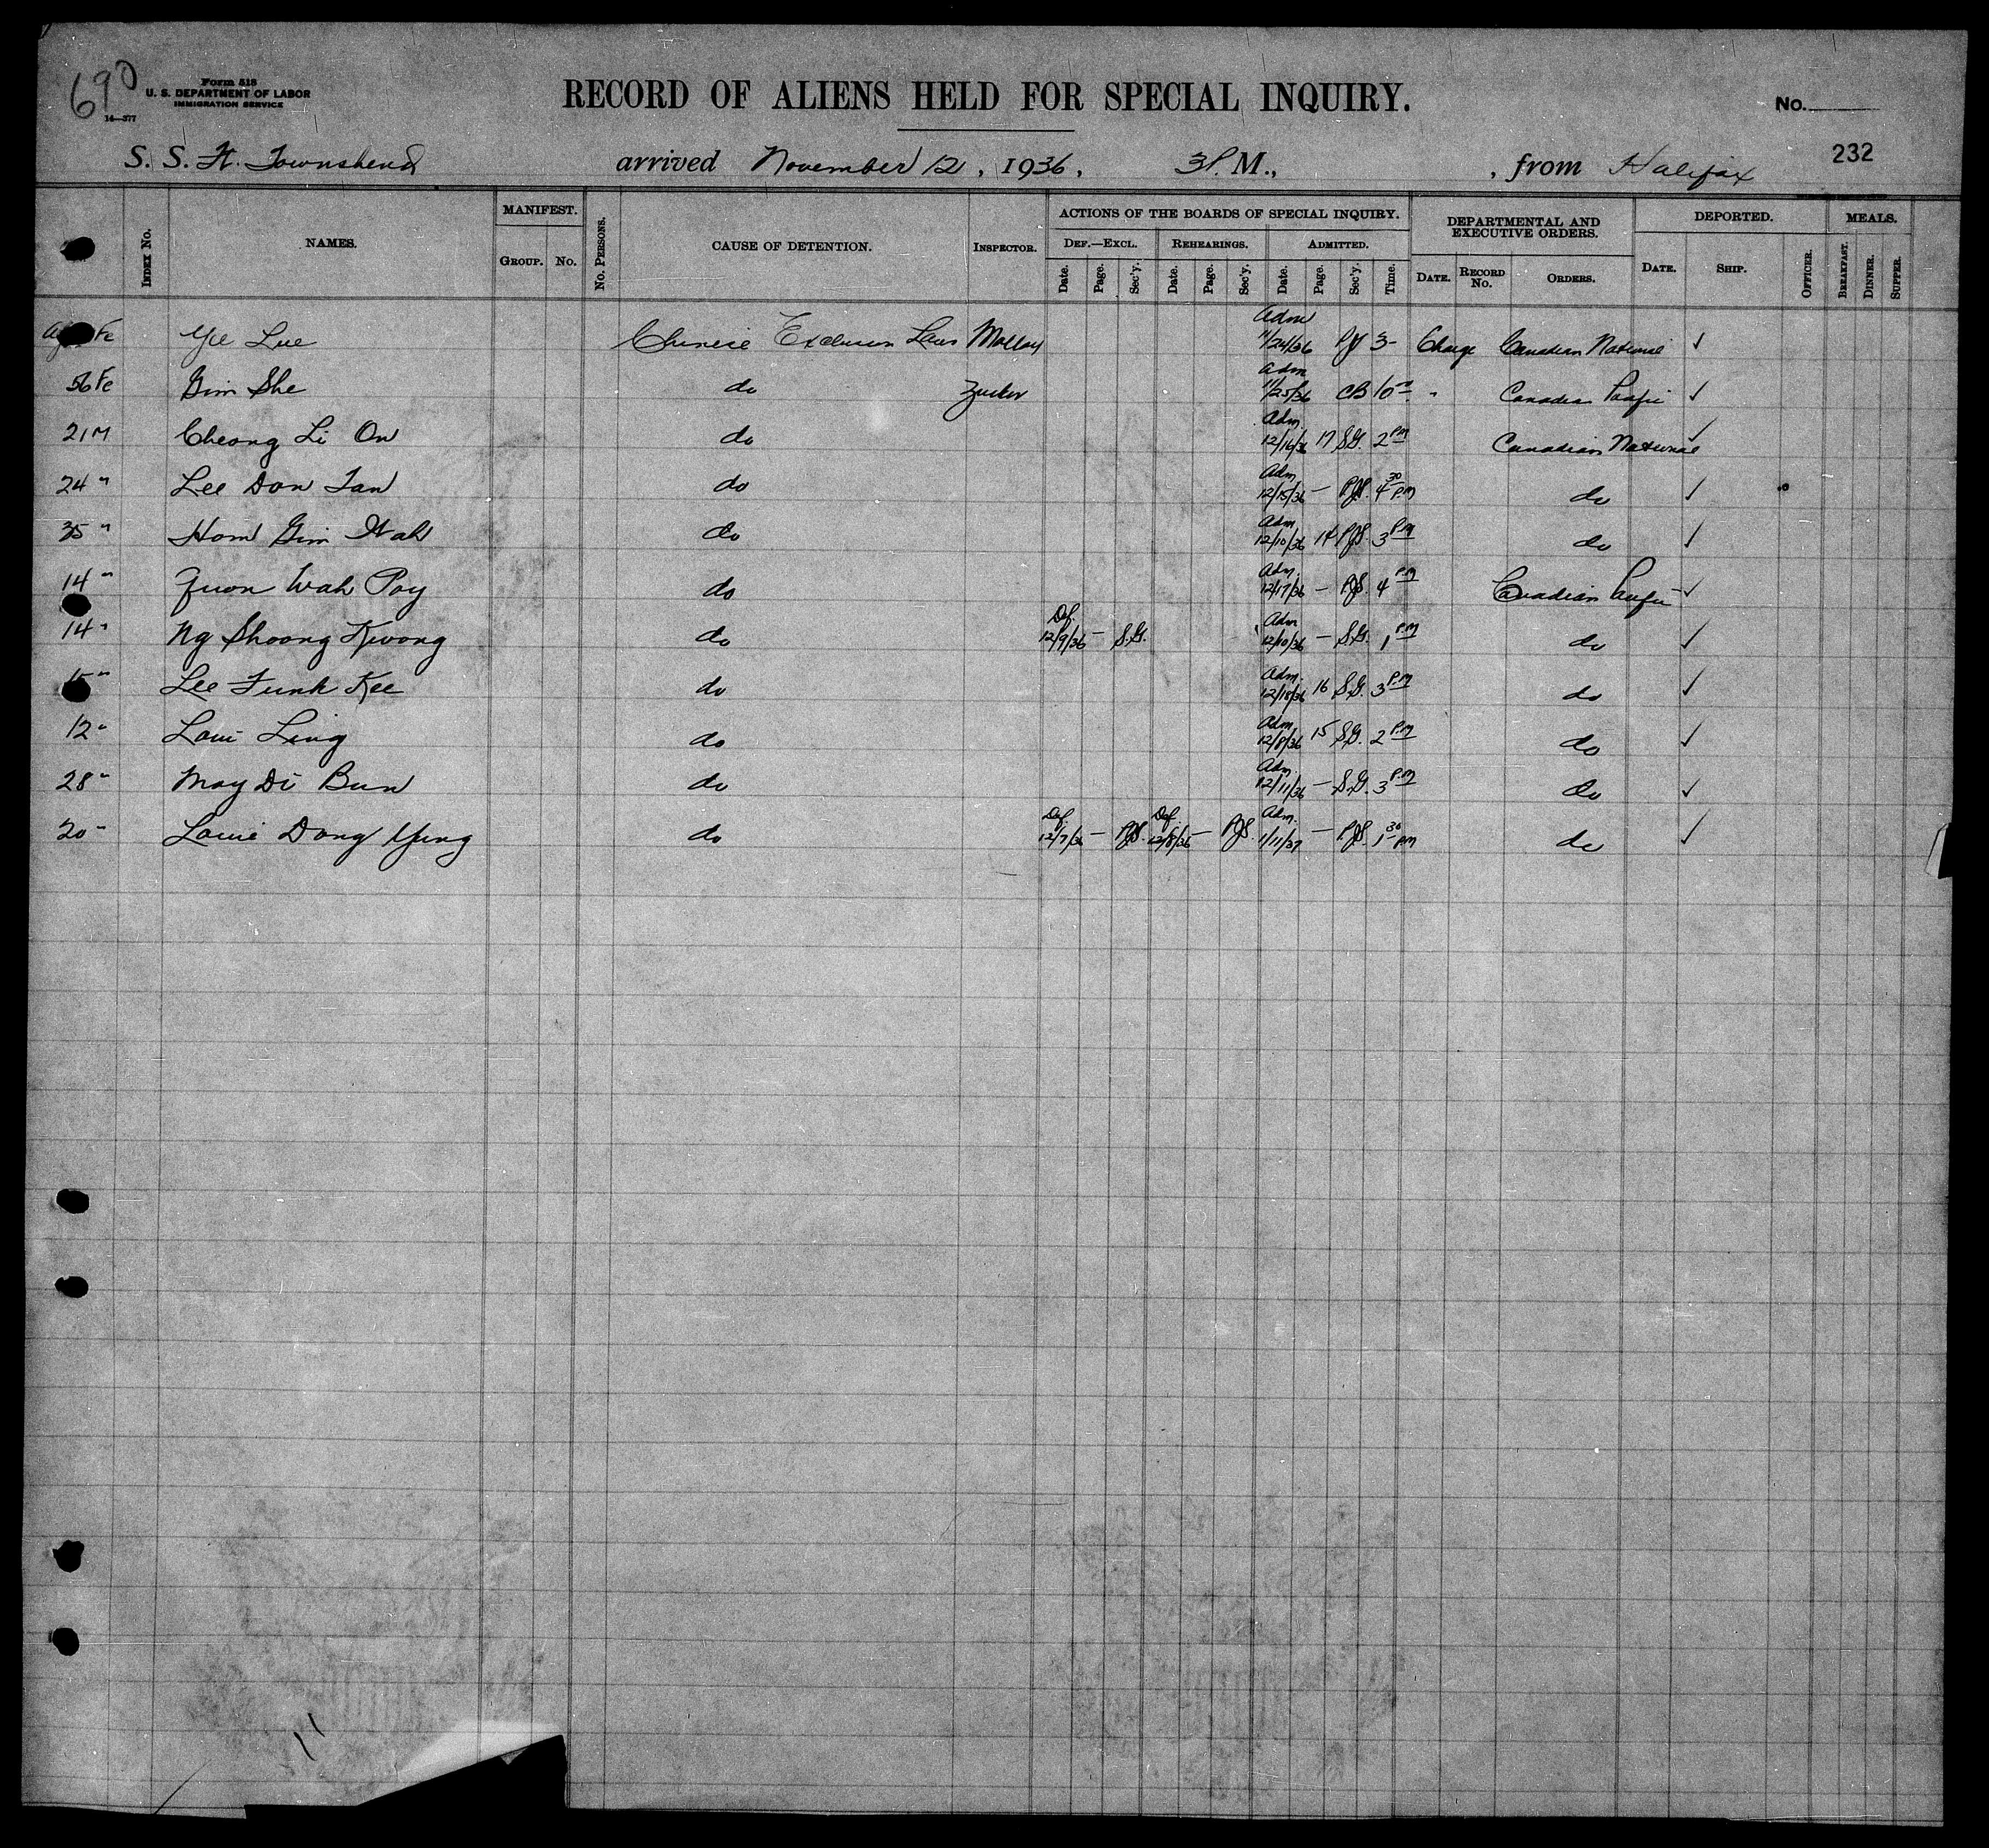 690
Form 518
U. S. DEPARTMENT OF LABOR
IMMIGRATION SERVICE
14—377
RECORD OF ALIENS HELD FOR SPECIAL INQUIRY.
No.
S. S. Ft. Townshend arrived November 12, 1936, 3 P. M., , from Halifax 232
INDEX No. NAMES. MANIFEST. GROUP. No. No. PERSONS. CAUSE OF DETENTION. INSPECTOR. ACTIONS OF THE BOARDS OF SPECIAL INQUIRY. DEPARTMENTAL AND EXECUTIVE ORDERS. DEPORTED. MEALS.
DEF.—EXCL. REHEARINGS. ADMITTED.
Date. Page. Sec'y. Date. Page. Sec'y. Date. Page. Sec'y. Time. DATE. RECORD No. ORDERS. DATE. SHIP. OFFICER. BREAKFAST. DINNER. SUPPER.
Fe Yee Lue Chinese Exclusion Laws Molloy Adm 11/24/36 3- Charge Canadian National ✓
56 Fe Gim She do Zucker Adm 11/25/36 CB 10 " Canadian Pacific ✓
21 M Cheong Li On do Adm. 12/16/36 17 S.G. 2 PM Canadian National ✓
24 " Lee Don Tan do Adm. 12/15/36 — PJS. 4 30 P.M do ✓
35 " Hom Gim Wah do Adm. 12/10/36 14 PJS. 3 P.M do ✓
14 " Quon Wah Poy do Adm. 12/17/36 — PJS. 4 P.M Canadian Pacific ✓
14 " Ng Shoong Kwong do Def. 12/9/36 — S.G. Adm 12/10/36 — S.G. 1 P.M do ✓
15 " Lee Funk Kee do Adm. 12/18/36 16 S.G. 3 P.M do ✓
12 " Loui Ling do Adm. 12/8/36 15 S.G. 2 P.M do ✓
28 " Moy Di Bun do Adm. 12/11/36 — S.G. 3 P.M do ✓
20 " Louie Dong Yung do Def. 12/7/36 — PJS. Def. 12/8/36 — PJS. Adm. 1/11/37 — PJS. 1 30 PM do ✓
11